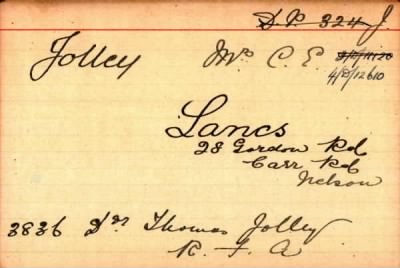 DP 324 J.
Jolley Mrs C. E
4/D/12610
Lancs
28 Gordon Rd
Carr Rd
Nelson
3836 Dvr Thomas Jolley
R. F. A